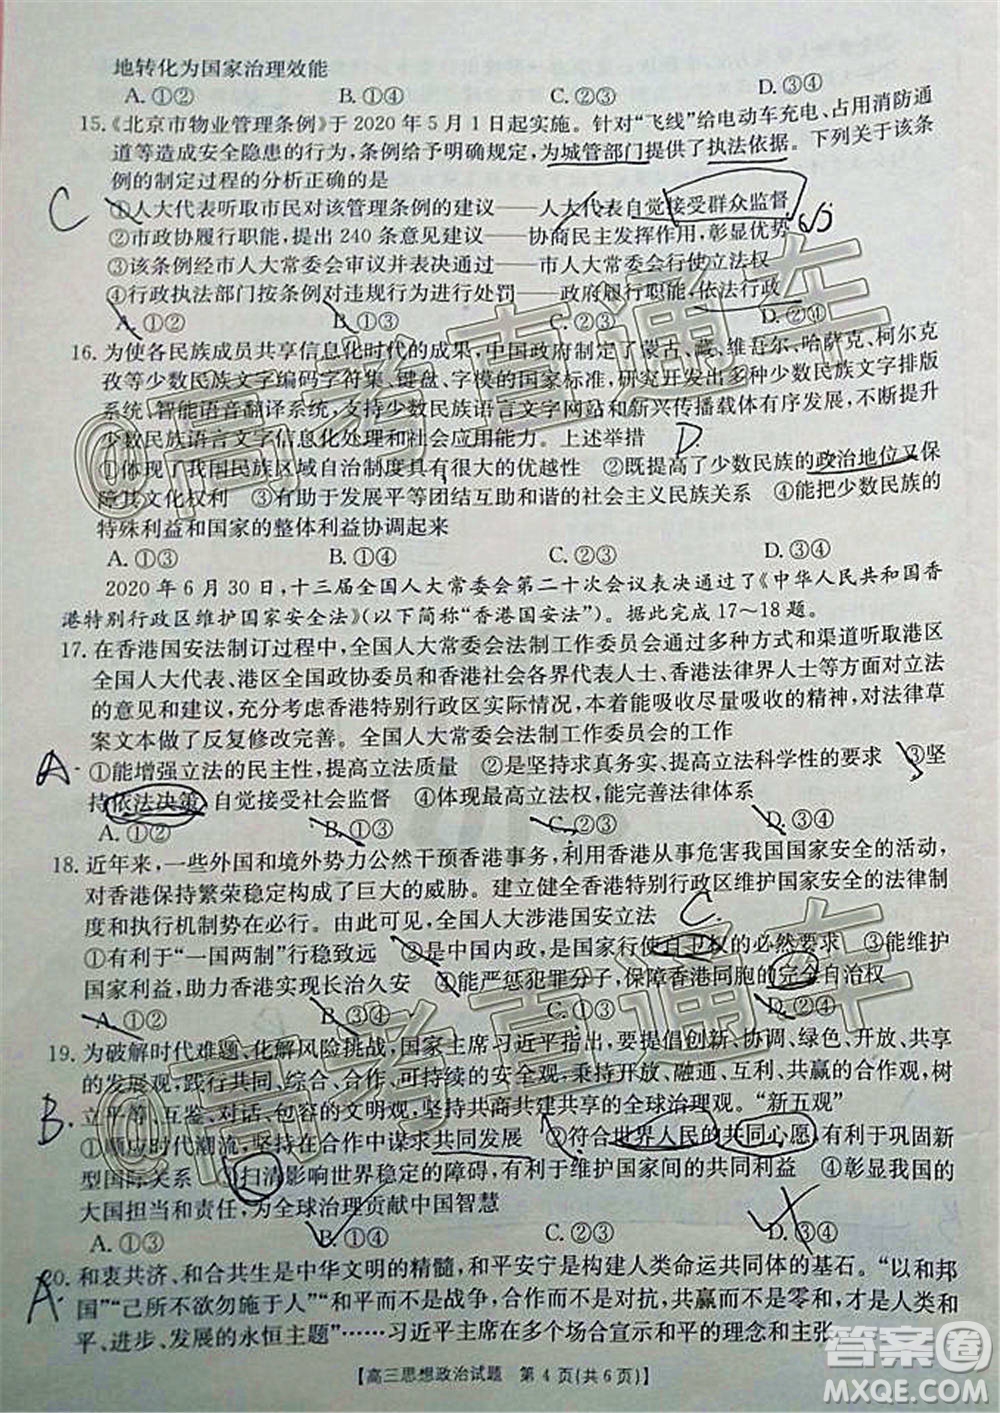 地转化为国家治理效能
A. ①② B. ①④ C. ②③ D. ③④
15.《北京市物业管理条例》于 2020 年 5 月 1 日起实施。针对“飞线”给电动车充电、占用消防通
道等造成安全隐患的行为，条例给予明确规定，为城管部门提供了执法依据。下列关于该条
例的制定过程的分析正确的是
C
①人大代表听取市民对该管理条例的建议——人大代表自觉接受群众监督
②市政协履行职能，提出 240 条意见建议——协商民主发挥作用，彰显优势
③该条例经市人大常委会审议并表决通过——市人大常委会行使立法权
④行政执法部门按条例对违规行为进行处罚——政府履行职能，依法行政
A. ①③ B. ①④ C. ②③ D. ②④
16. 为使各民族成员共享信息化时代的成果，中国政府制定了蒙古、藏、维吾尔、哈萨克、柯尔克
孜等少数民族文字编码字符集、键盘、字模的国家标准，研究开发出多种少数民族文字排版
系统、智能语音翻译系统，支持少数民族语言文字网站和新兴传播载体有序发展，不断提升
少数民族语言文字信息化处理和应用能力。上述举措 D.
①体现了我国民族区域自治制度具有很大的优越性 ②既提高了少数民族的政治地位又保
障其文化权利 ③有助于发展平等团结互助和谐的社会主义民族关系 ④能把少数民族的
特殊利益和国家的整体利益协调起来
A. ①③ B. ①④ C. ②③ D. ③④
2020 年 6 月 30 日，十三届全国人大常委会第二十次会议表决通过了《中华人民共和国香
港特别行政区维护国家安全法》(以下简称“香港国安法”)。据此完成 17～18 题。
17. 在香港国安法制订过程中，全国人大常委会法制工作委员会通过多种方式和渠道听取港区
全国人大代表、港区全国政协委员和香港社会各界代表人士、香港法律界人士等对立法
的意见和建议，充分考虑香港特别行政区实际情况，本着能吸收尽量吸收的精神，对法律草
案文本做了反复修改完善。全国人大常委会法制工作委员会的工作
A.
①能增强立法的民主性，提高立法质量 ②是坚持求真务实、提高立法科学性的要求 ③坚
持依法决策，自觉接受社会监督 ④能优化最高立法权，能完善法律体系
A. ①② B. ①③ C. ②④ D. ③④
18. 近年来，一些外国和境外势力公然干预香港事务，利用香港从事危害我国国家安全的活动，
对香港保持繁荣稳定构成了巨大的威胁。建立健全香港特别行政区维护国家安全的法律制
度和执行机制势在必行。由此可见，全国人大涉港国安立法 C.
①有利于“一国两制”行稳致远 ②是中国内政，是国家行使自卫权的必然要求 ③能维护
国家利益，助力香港实现长治久安 ④能严惩犯罪分子，保障香港同胞的完全自治权
A. ①② B. ③④ C. ①③ D. ②④
19. 为破解时代难题、化解风险挑战，国家主席习近平指出，要提倡创新、协调、绿色、开放、共享
的发展观，践行共同、综合、合作、可持续的安全观，秉持开放、融通、互利、共赢的合作观，树
立平等、互鉴、对话、包容的文明观，坚持共商共建共享的全球治理观。“新五观”
B.
①顺应时代潮流，坚持在合作中谋求共同发展 ②符合世界人民的共同心愿，有利于巩固新
型国际关系 ③扫清影响世界稳定的障碍，有利于维护国家间的共同利益 ④彰显我国的
大国担当和责任，为全球治理贡献中国智慧
A. ①③ B. ①④ C. ②③ D. ③④
20. 和衷共济、和合共生是中华文明的精髓，和平安宁是构建人类命运共同体的基石。“以和邦
A.
国”“己所不欲勿施于人”“和平而不是战争，合作而不是对抗，共赢而不是零和，才是人类和
平、进步、发展的永恒主题”……习近平主席在多个场合宣示和平的理念和主张
【高三思想政治试题 第 4 页(共 6 页)】
@高考直通车
@高考直通车
答案圈
MXQE.COM